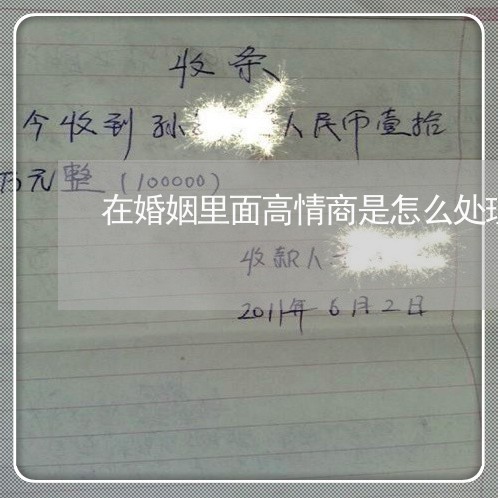 收条
今收到孙 人民币壹拾
万元整(100000)
在婚姻里面高情商是怎么处理
收款人
2011年6月2日